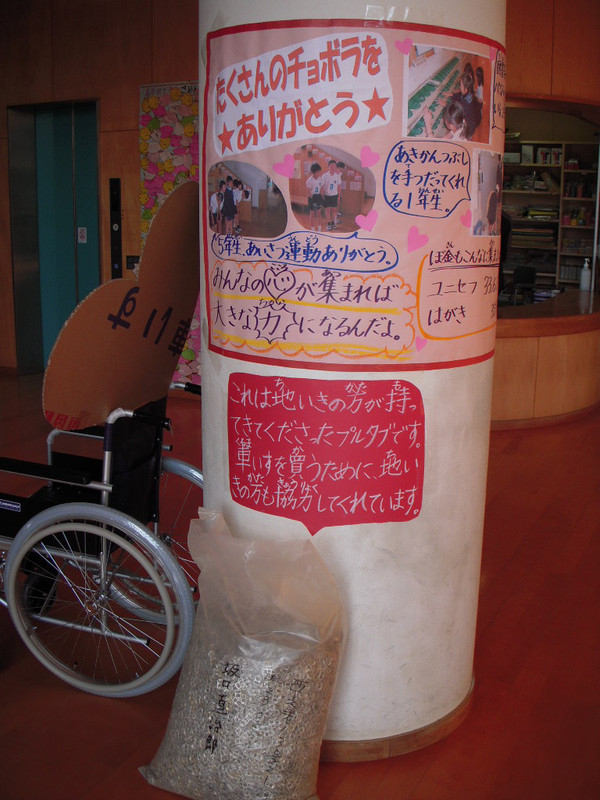 たくさんのチョボラを
★ありがとう★
あきかんつぶし
を手つだってくれ
る1年生。
5年生、あいさつ運動ありがとう。
みんなの心が集まれば
大きな力になるんだよ。
ぼ金もこんなに集ま
ユニセフ
はがき
これは地いきの方が持っ
てきてくださったプルタブです。
車いすを買うために、地い
きの方も協力してくれています。
車いす